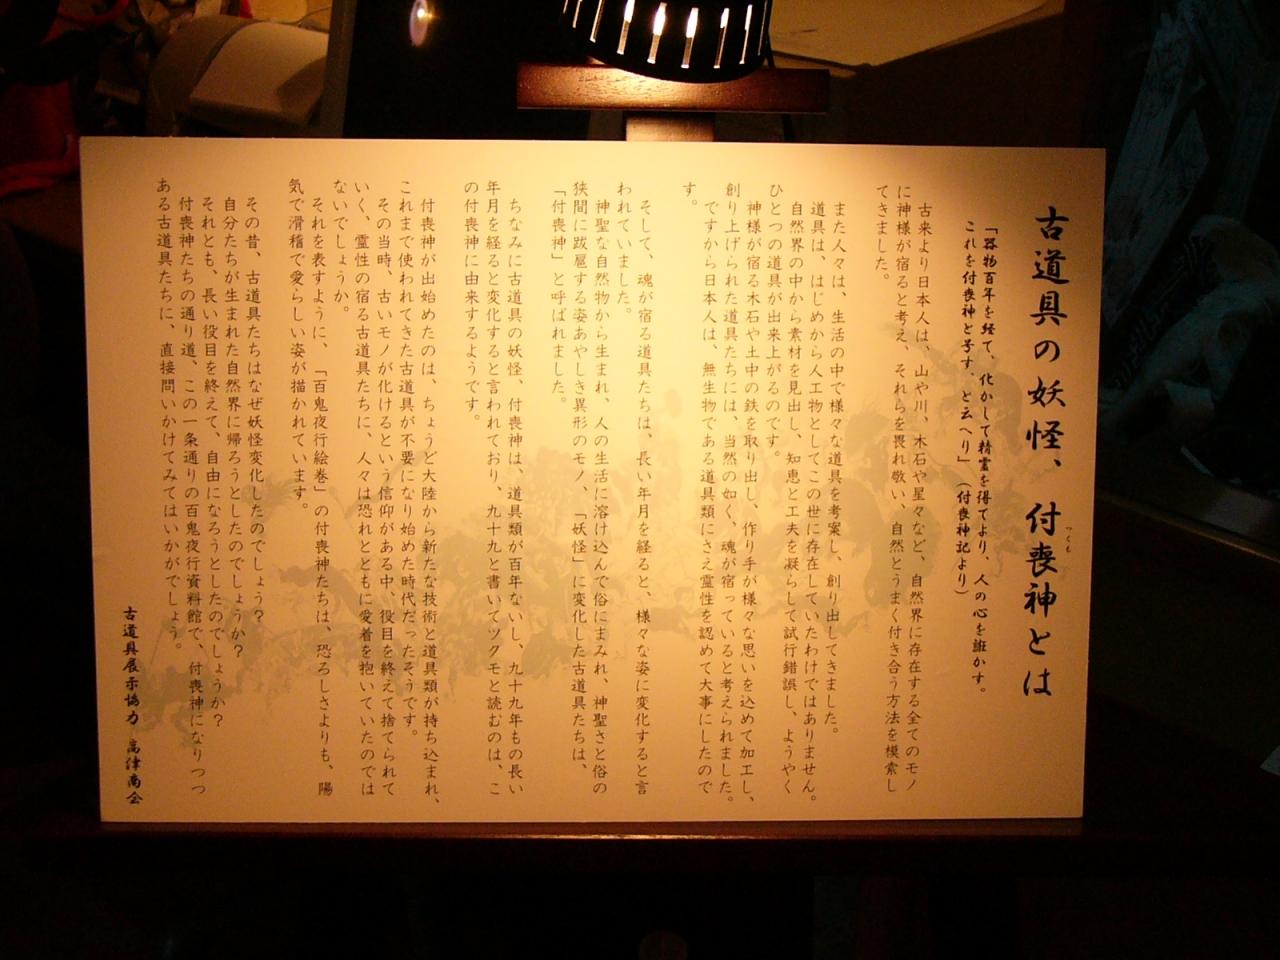 古道具の妖怪、付喪神とは
つくも
「器物百年を経て、化かして精霊を得てより、人の心を誑かす。
これを付喪神と号す、と云へり」(付喪神記より)
古来より日本人は、山や川、木石や星々など、自然界に存在する全てのモノ
に神様が宿ると考え、それらを畏れ敬い、自然とうまく付き合う方法を模索し
てきました。
また人々は、生活の中で様々な道具を考案し、創り出してきました。
道具は、はじめから人工物としてこの世に存在していたわけではありません。
自然界の中から素材を見出し、知恵と工夫を凝らして試行錯誤し、ようやく
ひとつの道具が出来上がるのです。
神様が宿る木石や土中の鉄を取り出し、作り手が様々な思いを込めて加工し、
創り上げられた道具たちには、当然の如く、魂が宿っていると考えられました。
ですから日本人は、無生物である道具類にさえ霊性を認めて大事にしたので
す。
そして、魂が宿る道具たちは、長い年月を経ると、様々な姿に変化すると言
われていました。
神聖な自然物から生まれ、人の生活に溶け込んで俗にまみれ、神聖さと俗の
狭間に跋扈する姿あやしき異形のモノ、「妖怪」に変化した古道具たちは、
「付喪神」と呼ばれました。
ちなみに古道具の妖怪、付喪神は、道具類が百年ないし、九十九年もの長い
年月を経ると変化すると言われており、九十九と書いてツクモと読むのは、こ
の付喪神に由来するようです。
付喪神が出始めたのは、ちょうど大陸から新たな技術と道具類が持ち込まれ、
これまで使われてきた古道具が不要になり始めた時代だったそうです。
その当時、古いモノが化けるという信仰がある中、役目を終えて捨てられて
いく、霊性の宿る古道具たちに、人々は恐れとともに愛着を抱いていたのでは
ないでしょうか。
それを表すように、「百鬼夜行絵巻」の付喪神たちは、恐ろしさよりも、陽
気で滑稽で愛らしい姿が描かれています。
その昔、古道具たちはなぜ妖怪変化したのでしょう?
自分たちが生まれた自然界に帰ろうとしたのでしょうか?
それとも、長い役目を終えて、自由になろうとしたのでしょうか?
付喪神たちの通り道、この一条通りの百鬼夜行資料館で、付喪神になりつつ
ある古道具たちに、直接問いかけてみてはいかがでしょう。
古道具展示協力 高津商会